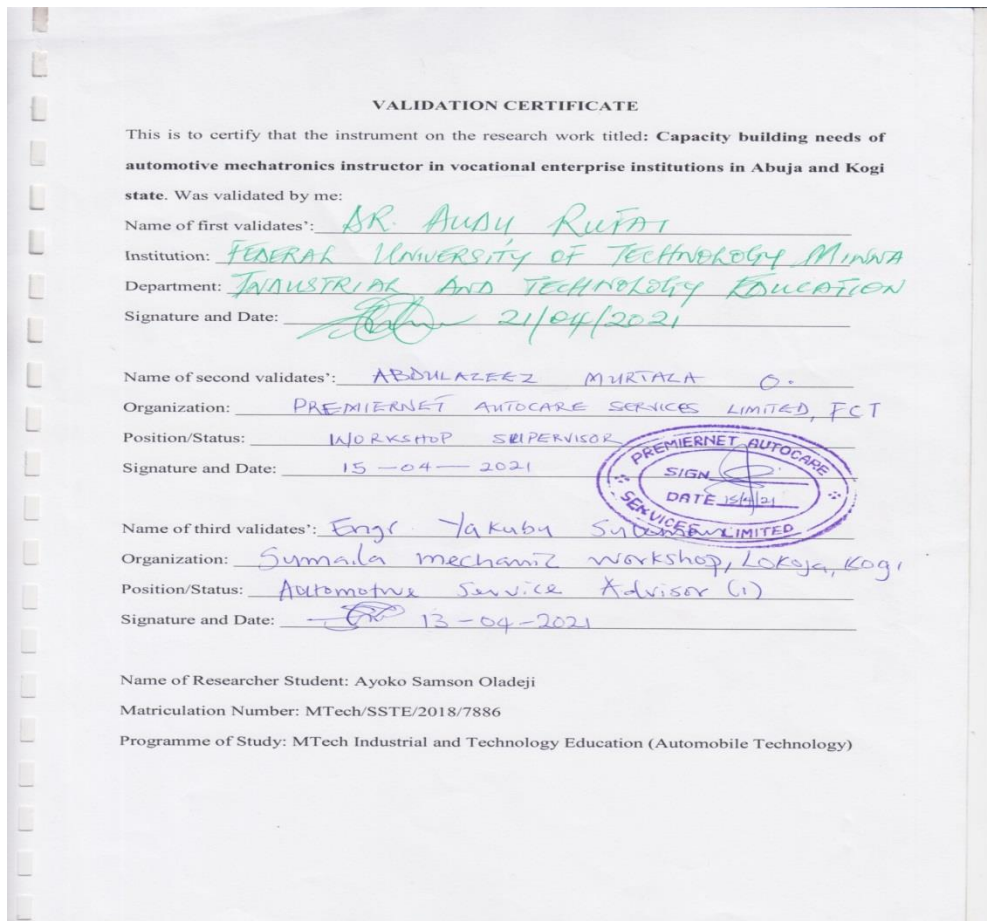 VALIDATION CERTIFICATE
This is to certify that the instrument on the research work titled: Capacity building needs of
automotive mechatronics instructor in vocational enterprise institutions in Abuja and Kogi
state. Was validated by me:
Name of first validates': DR. AUDU RUFAI
Institution: FEDERAL UNIVERSITY OF TECHNOLOGY MINNA
Department: INDUSTRIAL AND TECHNOLOGY EDUCATION
Signature and Date: 21/04/2021
Name of second validates': ABDULAZEEZ MURTALA O.
Organization: PREMIERNET AUTOCARE SERVICES LIMITED, FCT
Position/Status: WORKSHOP SUPERVISOR
Signature and Date: 15-04-2021
PREMIERNET AUTOCARE
SIGN
DATE 15/4/21
SERVICES LIMITED
Name of third validates': Engr. Yakubu
Organization: Sumaila mechanic workshop, Lokoja, Kogi
Position/Status: Automotive Service Advisor (1)
Signature and Date: 13-04-2021
Name of Researcher Student: Ayoko Samson Oladeji
Matriculation Number: MTech/SSTE/2018/7886
Programme of Study: MTech Industrial and Technology Education (Automobile Technology)